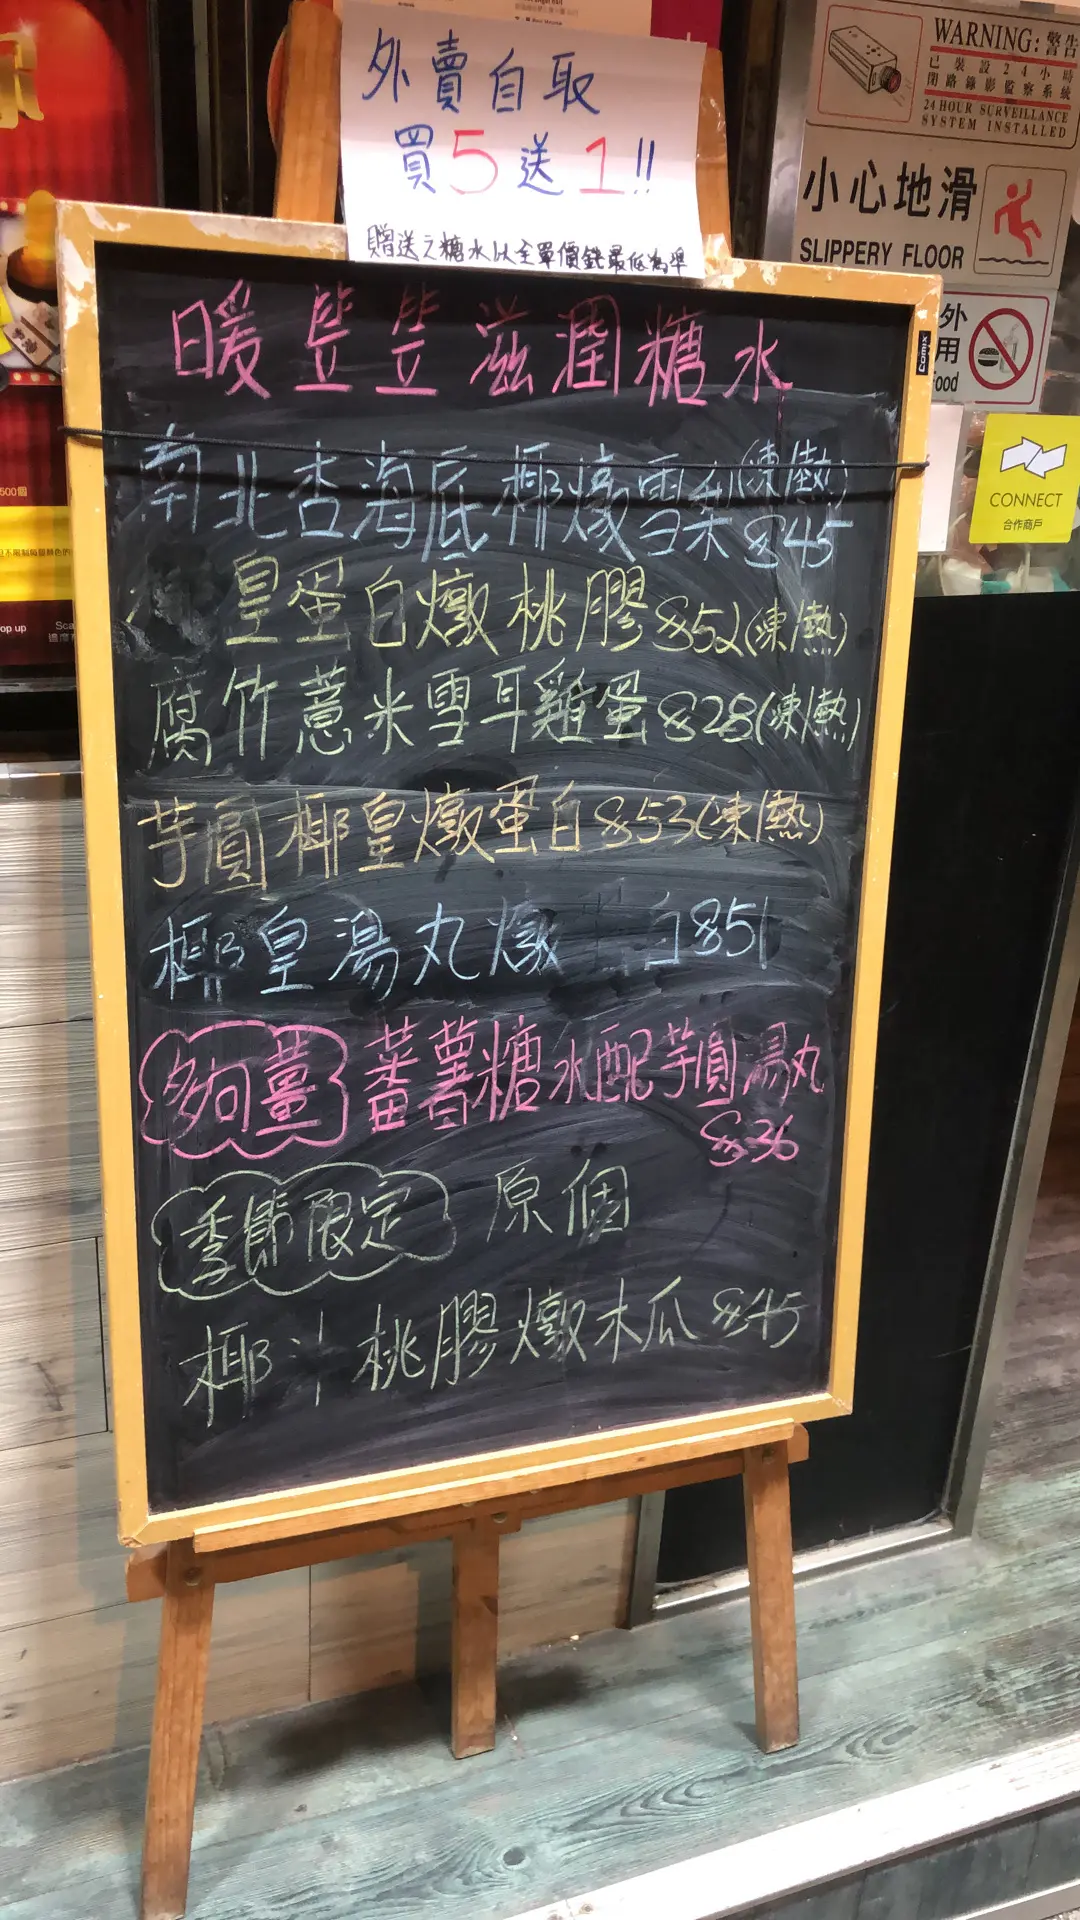 外賣自取
買5送1!!
贈送之糖水以全單價錢最低為準
WARNING: 警告
已裝設24小時
閉路錄影監察系統
24 HOUR SURVEILLANCE
SYSTEM INSTALLED
小心地滑
SLIPPERY FLOOR
外
用
Food
comix
CONNECT
合作商戶
暖笠笠滋潤糖水
南北杏海底椰燉雪梨(凍/熱)
$45
皇蛋白燉桃膠$52(凍/熱)
腐竹薏米雪耳雞蛋$28(凍/熱)
芋圓椰皇燉蛋白$53(凍/熱)
椰皇湯丸燉 白$51
夠薑 蕃薯糖水配芋圓湯丸
$36
季節限定 原個
椰汁桃膠燉木瓜$45
500個
op up